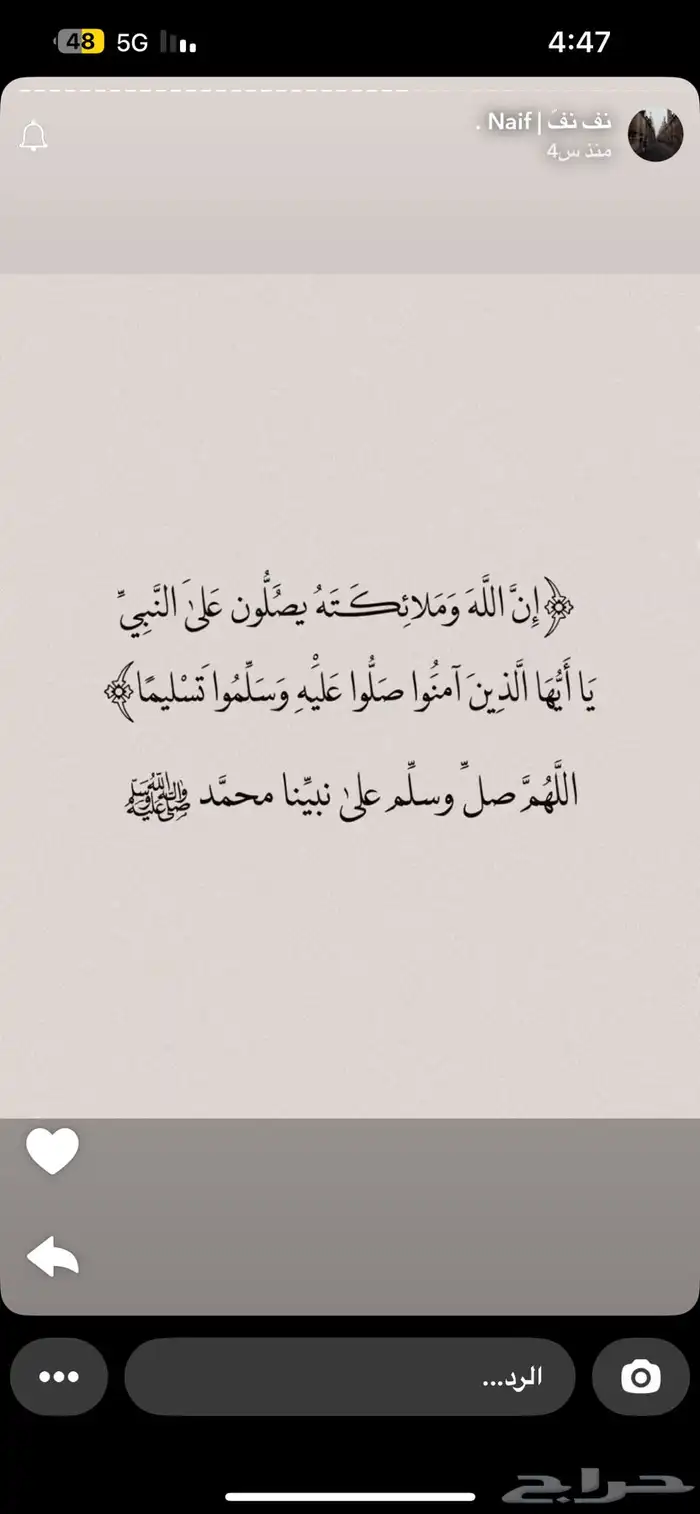 48 5G 4:47
نف نفّ | Naif .
منذ س4
﴿إِنَّ اللَّهَ وَمَلائِكَتَهُ يُصَلُّون عَلَىٰ النَّبِيِّ
يَا أَيُّهَا الَّذِينَ آمَنُوا صَلُّوا عَلَيْهِ وَسَلِّمُوا تَسْلِيمًا﴾
اللَّهُمَّ صلِّ وسلِّم علىٰ نبيِّنا محمَّد ﷺ
الرد...
حراج